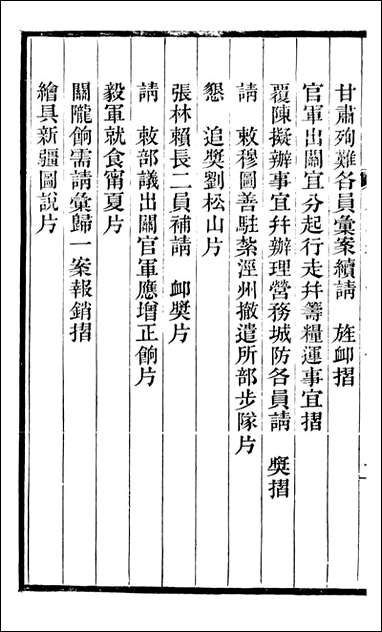 甘肅殉難各員彙案續請　旌卹摺
官軍出關宜分起行走幷籌糧運事宜摺
覆陳擬辦事宜幷辦理營務城防各員請　獎摺
請　敕穆圖善駐紮涇州撤遣所部步隊片
懇　追獎劉松山片
張林賴長二員補請　卹獎片
請　敕部議出關官軍應增正餉片
毅軍就食甯夏片
關隴餉需請彙歸一案報銷摺
繪具新疆圖說片